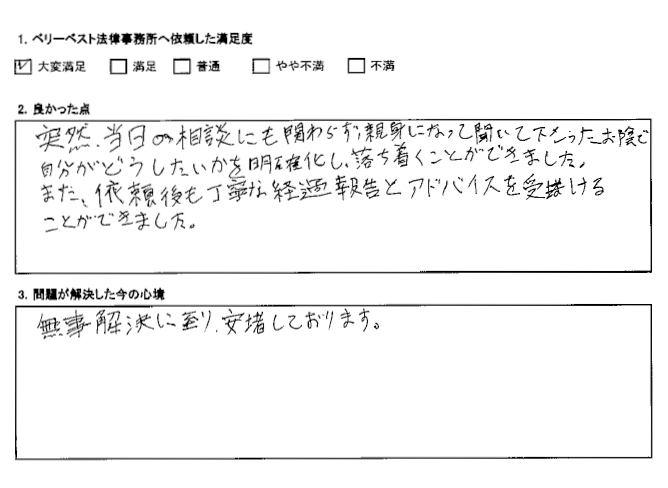 1. ベリーベスト法律事務所へ依頼した満足度
☑ 大変満足 ☐ 満足 ☐ 普通 ☐ やや不満 ☐ 不満
2. 良かった点
突然、当日の相談にも関わらず、親身になって聞いて下さったお陰で
自分がどうしたいかを明確化し、落ち着くことができました。
また、依頼後も丁寧な経過報告とアドバイスを受けける
ことができました。
3. 問題が解決した今の心境
無事解決に至り、安堵しております。